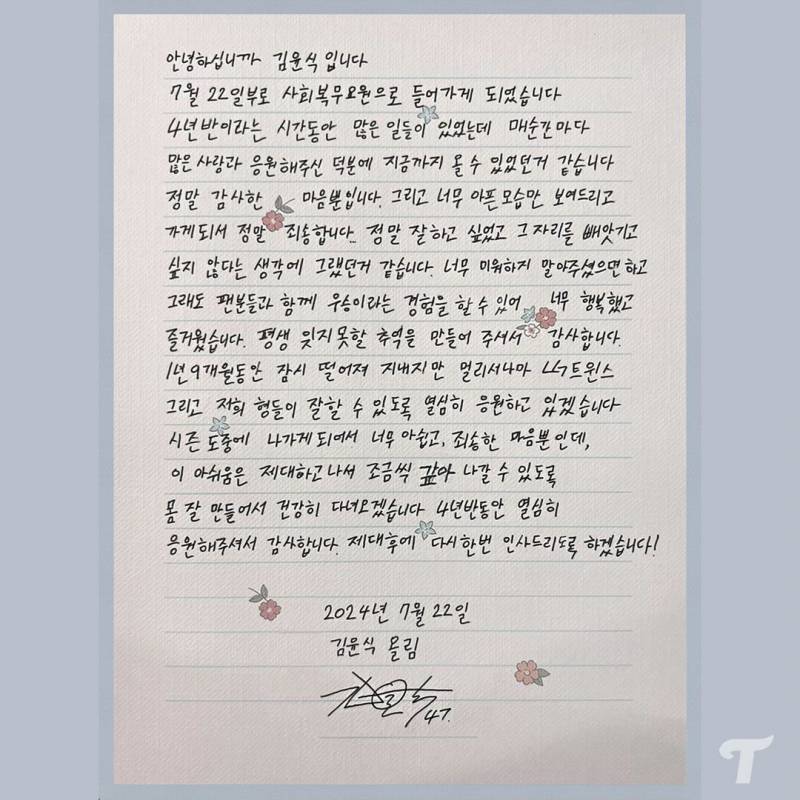 안녕하십니까 김윤식 입니다
7월 22일부로 사회복무요원으로 들어가게 되었습니다
4년반이라는 시간동안 많은 일들이 있었는데 매순간마다
많은 사랑과 응원해주신 덕분에 지금까지 올 수 있었던거 같습니다
정말 감사한 마음뿐입니다. 그리고 너무 아픈 모습만 보여드리고
가게되서 정말 죄송합니다.. 정말 잘하고 싶었고 그 자리를 빼앗기고
싶지 않다는 생각에 그랬던거 같습니다. 너무 미워하지 말아주셨으면 하고
그래도 팬분들과 함께 우승이라는 경험을 할 수 있어 너무 행복했고
즐거웠습니다. 평생 잊지못할 추억을 만들어 주셔서 감사합니다.
1년 9개월동안 잠시 떨어져 지내지만 멀리서나마 LG트윈스
그리고 저희 형들이 잘할 수 있도록 열심히 응원하고 있겠습니다
시즌 도중에 나가게 되어서 너무 아쉽고, 죄송한 마음뿐인데,
이 아쉬움은 제대하고 나서 조금씩 갚아 나갈 수 있도록
몸 잘 만들어서 건강히 다녀오겠습니다 4년반동안 열심히
응원해주셔서 감사합니다. 제대후에 다시한번 인사드리도록 하겠습니다!
2024년 7월 22일
김윤식 올림
47.
T